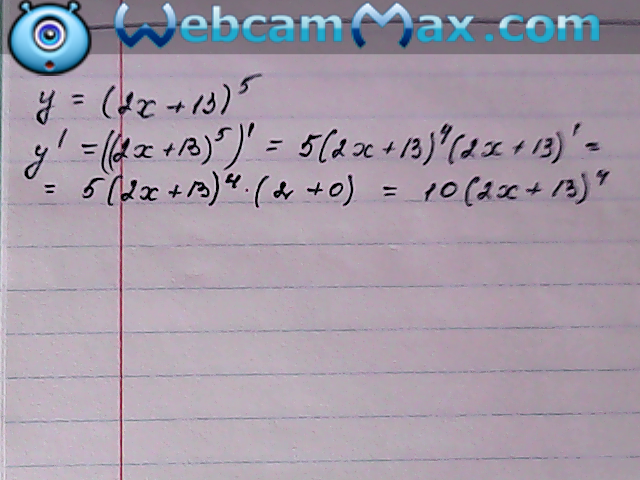 WebcamMax.com
y = (2x + 13)^5
y' = ((2x + 13)^5)' = 5(2x + 13)^4 (2x + 13)' =
= 5(2x + 13)^4 · (2 + 0) = 10(2x + 13)^4